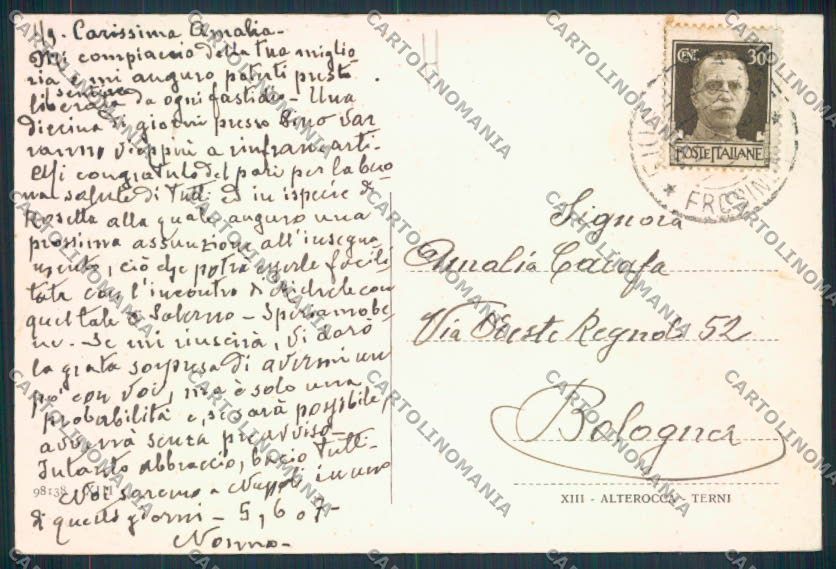 Carissima Amalia -
Mi compiaccio della tua miglio
ria e mi auguro poterti presto
sentire
liberata da ogni fastidio - Una
diecina di giorni presso Gino var
ranno vieppiù a rinfrancarti -
Mi congratulo del pari per la buo
na salute di tutti ed in ispecie di
Rosetta alla quale auguro una
prossima assunzione all'insegna
mento, ciò che potrà esserle facili
tata con l'incontro di Michele con
quel tale a Salerno - Speriamo be
ne - Se mi riuscirà, vi darò
la grata sorpresa di avermi un
po' con voi, ma è solo una
probabilità e, se sarà possibile,
avverrà senza preavviso -
Intanto abbraccio, bacio tutti -
Noi saremo a Napoli in uno
di questi giorni - 5, 6 o 7 -
Nonno -
98138
CENT. 30
POSTE ITALIANE
FROSIN
Signora
Amalia
Via Oreste Regnoli 52
Bologna
XIII - ALTEROCCA - TERNI
CARTOLINOMANIA